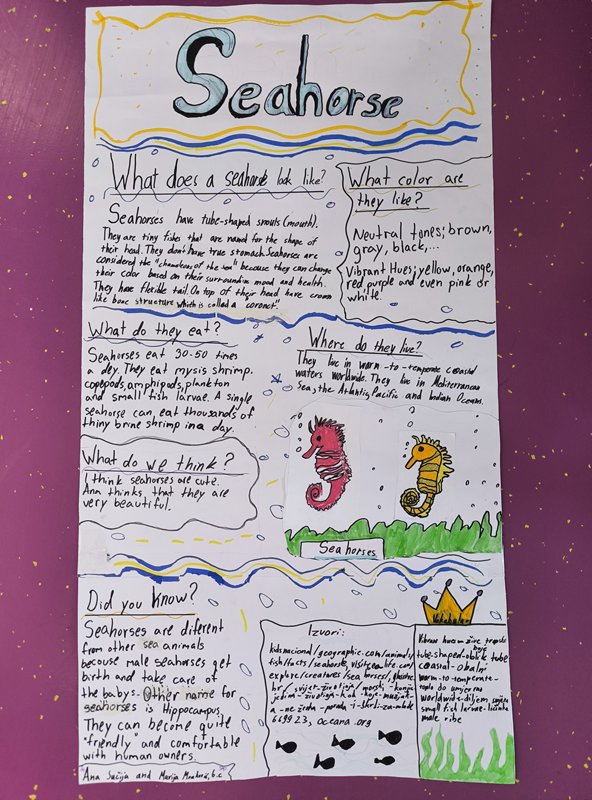 Seahorse
What does a seahorse look like?
Seahorses have tube-shaped snouts (mouth).
They are tiny fishes that are named for the shape of
their head. They don't have true stomach. Seahorses are
considered the "chameleons of the sea" because they can change
their color based on their surroundin mood and health.
They have flexible tail. On top of their head have crown
like bone structure which is called a "coronet".
What color are
they like?
Neutral tones; brown,
gray, black,...
Vibrant Hues; yellow, orange,
red, purple and even pink or
white.
What do they eat?
Seahorses eat 30-50 times
a day. They eat mysis shrimp,
copepods, amphipods, plankton
and small fish larvae. A single
seahorse can eat thousands of
thiny brine shrimp in a day.
Where do they live?
They live in warm-to-temperate coastal
waters worldwide. They live in Mediterranean
Sea, the Atlantic, Pacific and Indian Oceans.
What do we think?
I think seahorses are cute.
Ana thinks that they are
very beautiful.
Seahorses
Did you know?
Seahorses are diferent
from other sea animals
becouse male seahorses get
birth and take care of
the babys. Other name for
seahorses is Hippocampus.
They can become quite
"friendly" and comfortable
with human owners.
Ana and Marija
Izvori:
kidsnational/geographic.com/animals/
fish/facts/seahorse, visitsealife.com/
explore/creatures/seahorses/,
hr/svijet-zivotinja/morski-konjic
jedina-zivotinja-kod-koje-muzjak
a-ne-zenka-
669923, oceana.org
Vibrant hues-
tube-shaped-oblik tube
coastal-obalni
warm-to-temperate-
toplo do umjerena
worldwide-diljem svijeta
small fish larvae-licinke
male ribe